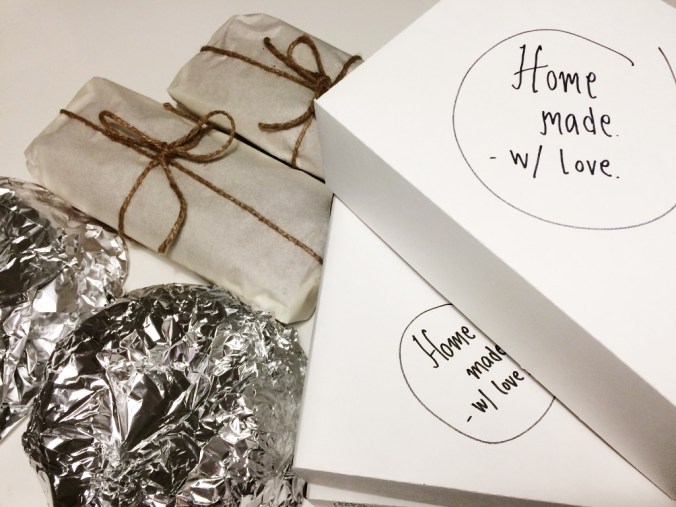 Home
made.
- w/ love.
Home
made
- w/ love.